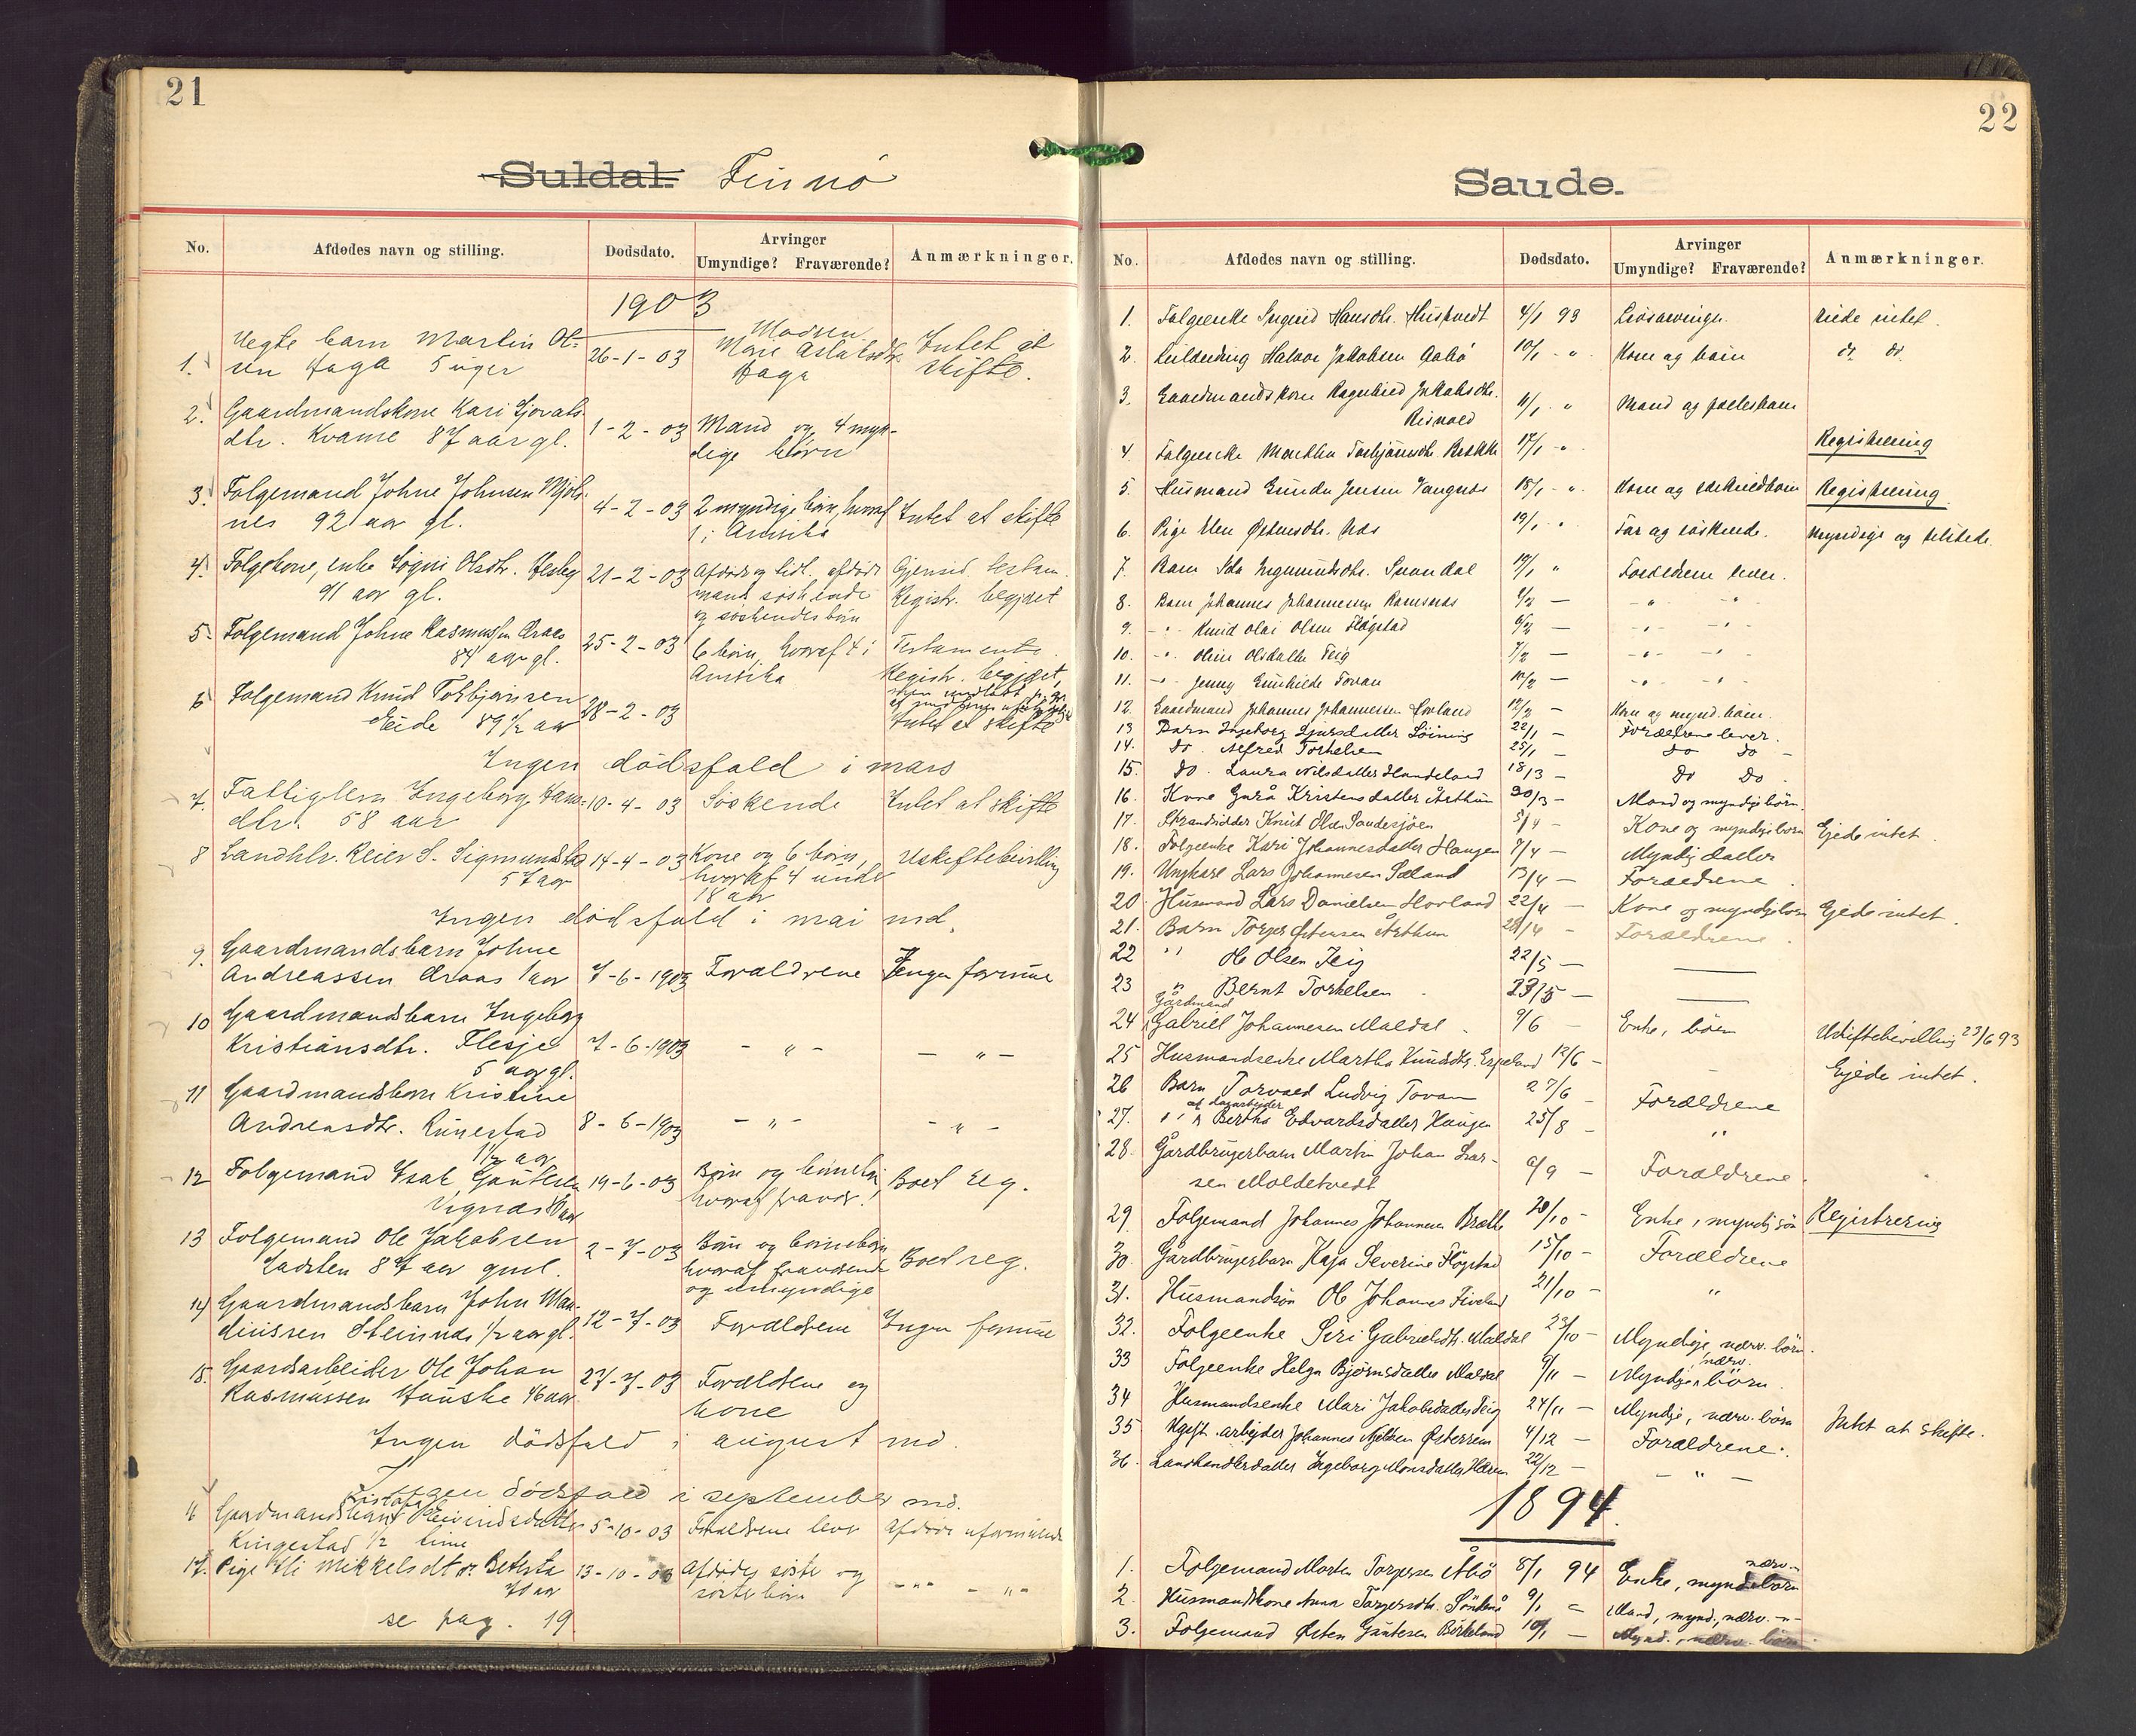 21
Suldal. Finnö
No. Afdødes navn og stilling. Dødsdato. Arvinger Umyndige? Fraværende? Anmærkninger.
1903
1. Uegte barn Martin Ol- 26-1-03 Moderen Intet at
sen Haga 5 uger Haga skifte.
2. Gaardmandskone Kari 1-2-03 Mand og 4 myn-
dtr. Kvame 87 aar gl. dige børn
3. Folgemand Johne Johnsen 4-2-03 2 myndige børn, hvoraf Intet at skifte
nes 92 aar gl. 1 i Amerika
4. Folgekone, enke Sogni Olsdtr. Hesby 21-2-03 Afdøde og tidl. afdøde Gjensid. testam.
91 aar gl. mands søskende Registr. begjæret
og søskendes børn
5. Folgemand Johne Rasmussen 25-2-03 6 børn, hvoraf 4 i Testamente.
84 aar gl. Amerika Registr. begjæret,
6 Folgemand Knud Torbjørnsen 28-2-03
Eide 89 1/2 aar Intet at skifte
Ingen dödsfald i mars
7. Fattiglem Ingeborg Hans- 10-4-03 Søskende Intet at skifte
dtr. 58 aar
8 Landhlr. Reier S. Sigmundstad 14-4-03 Kone og 6 børn, Uskiftebevilling
57 aar hvoraf 4 under
18 aar
Ingen dödsfald i mai md.
9. Gaardmandsbarn Johne
Andreassen 1 aar 7-6-1903 Forældrene Ingen formue
10 Gaardmandsbarn Ingeborg
Kristiansdtr. Flesje 7-6-1903 - " - - " -
5 aar gl.
11 Gaardmandsbarn Kristine
Andreasdtr. Rünestad 8-6-1903 - " - - " -
1 1/2 aar
12 Folgemand Isak 19-6-03 Børn og børnebørn Boet reg.
Vignes aar hvoraf fravær.
13 Folgemand Ole Jakobsen 2-7-03 Børn og børnebørn Boet reg.
Ladsten 87 aar gml. hvoraf fraværende
og umyndige
14 Gaardmandsbarn John Mau- 12-7-03 Forældrene Ingen formue
ritssen Steinnes 1/2 aar gl.
15. Gaardsarbeider Ole Johan 27-7-03 Forældrene og
Rasmussen Hauske 46 aar kone
Ingen dödsfald i august md.
Ingen dödsfald i september md.
16 Gaardmandsbarn Eivindsdatter 5-10-03 Forældrene lever Afdøde uformuende
Ringestad 1/2 time
17. Pige Eli Mikkelsdtr. 13-10-03 Afdødes søster og -"- -"-
70 aar søsterbørn
se pag. 19
22
Saude.
No. Afdødes navn og stilling. Dødsdato. Arvinger Umyndige? Fraværende? Anmærkninger.
1. Folgeenke Ingerid Hansdtr. Huskvedt 4/1 93 Livsarvinger. Eiede intet.
2. Leilænding Halvor Jakobsen Aabø 10/1 - " Kone og børn do. do.
3. Gaardmandskone Ragnhild Jakobsdtr. 11/1 - " Mand og fællesbarn
Risvold
4. Folgeenke Martha Torbjörnsdtr. 17/1 - " Registrering
5. Husmand Gunder Jensen Vangsnes 18/1 - " Kone og særkuldbarn Registrering.
6. Pige Elen Østensdtr. Næs 19/1 - " Far og søskende. Myndige og tilstede.
7. Barn Ida Ingemundsdtr. Svandal 19/1 " Forældrene lever.
8. Barn Johannes Johannessen Ramsnæs 1/2 — - " - - " -
9. - " - Knud Olai Olsen Fløgstad 6/2 — - " - - " -
10. - " - Oline Olsdatter Teig 7/2 — - " - - " -
11. - " - Jenny Gunhilde Tovan 10/2 — - " - - " -
12. Gaardmand Johannes Johannessen Hovland 12/2 — Kone og mynd. børn.
13 Barn Ingeborg Sjursdatter Löining 22/1 — Forældrene lever.
14. do. Alfred Torkelsen 25/1 — do do -
15. do. Laura Nilsdatter Handeland 18/3 — do do.
16. Kone Gurå Kristensdatter Årthun 30/3 — Mand og myndige børn.
17. Strandsidder Knut Olsen Saudesjøen 5/4 — Kone og myndige børn Ejede intet.
18. Folgeenke Kari Johannesdatter Haugen 7/4 — Myndig datter
19. Ungkarl Lars Johannesen Sæland 13/4 — Forældrene.
20 Husmand Lars Danielsen Hovland 22/4 — Kone og myndige børn Ejede intet.
21. Barn Torger Østensen Årthun 28/4 - Forældrene.
22 " Ole Olsen Teig 22/5 — ——
23 " Bernt Torkelsen 23/5 — ——
24 Gårdmand Gabriel Johannesen Maldal. 9/6 - Enke, börn Uskiftebevilling 23/6 93
25 Husmandsenke Martha Knudsdtr. 12/6 - - Ejede intet.
26 Barn Torvald Ludvig Tovan 27/6 - Forældrene
27. " af dagarbejder Bertha Edvardsdatter Haugen 25/8 - "
28. Gårdbrugerbarn Martin Johan Lar- 6/9 - Forældrene.
sen Moldetvedt
29. Folgemand Johannes Johannesen Bratt 28/10 - Enke, myndig sön Registrering
30. Gårdbrugerbarn Kaja Severine Flögstad 15/10 - Forældrene
31. Husmandsön Ole Johannes Fiveland 21/10 - "
32. Folgeenke Siri Gabrielsdtr. Maldal 23/10 - Myndige, nærv. börn.
33 Folgeenke Helga Bjørnsdatter Maldal 9/11 - Myndige, nærv. börn.
34 Husmandsenke Mari Jakobsdatter Teig 24/11 — Myndige, nærv. börn Intet at skifte.
35 Ugift arbejder Johannes Østerem 4/12 — Forældrene.
36. Landhandlerdatter Ingeborg Monsdatter 22/12 — - " -
1894.
1. Folgemand Morten Torgersen Åbö 8/1 94 Enke, mynd. nærv. börn
2. Husmandskone Anna Torgersdtr. 9/1 = Mand, mynd., nærv. -"-
3. Folgemand Østen Birkeland 10/1 — Mynd., nærv. børn.